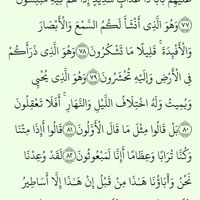 عَلَيْهِم بَابًا ذَا عَذَابٍ شَدِيدٍ إِذَا هُمْ فِيهِ مُبْلِسُونَ
﴿٧٧﴾ وَهُوَ الَّذِي أَنشَأَ لَكُمُ السَّمْعَ وَالْأَبْصَارَ
وَالْأَفْئِدَةَ ۚ قَلِيلًا مَّا تَشْكُرُونَ ﴿٧٨﴾ وَهُوَ الَّذِي ذَرَأَكُمْ
فِي الْأَرْضِ وَإِلَيْهِ تُحْشَرُونَ ﴿٧٩﴾ وَهُوَ الَّذِي يُحْيِي
وَيُمِيتُ وَلَهُ اخْتِلَافُ اللَّيْلِ وَالنَّهَارِ ۚ أَفَلَا تَعْقِلُونَ
﴿٨٠﴾ بَلْ قَالُوا مِثْلَ مَا قَالَ الْأَوَّلُونَ ﴿٨١﴾ قَالُوا أَإِذَا مِتْنَا
وَكُنَّا تُرَابًا وَعِظَامًا أَإِنَّا لَمَبْعُوثُونَ ﴿٨٢﴾ لَقَدْ وُعِدْنَا
نَحْنُ وَآبَاؤُنَا هَٰذَا مِن قَبْلُ إِنْ هَٰذَا إِلَّا أَسَاطِيرُ